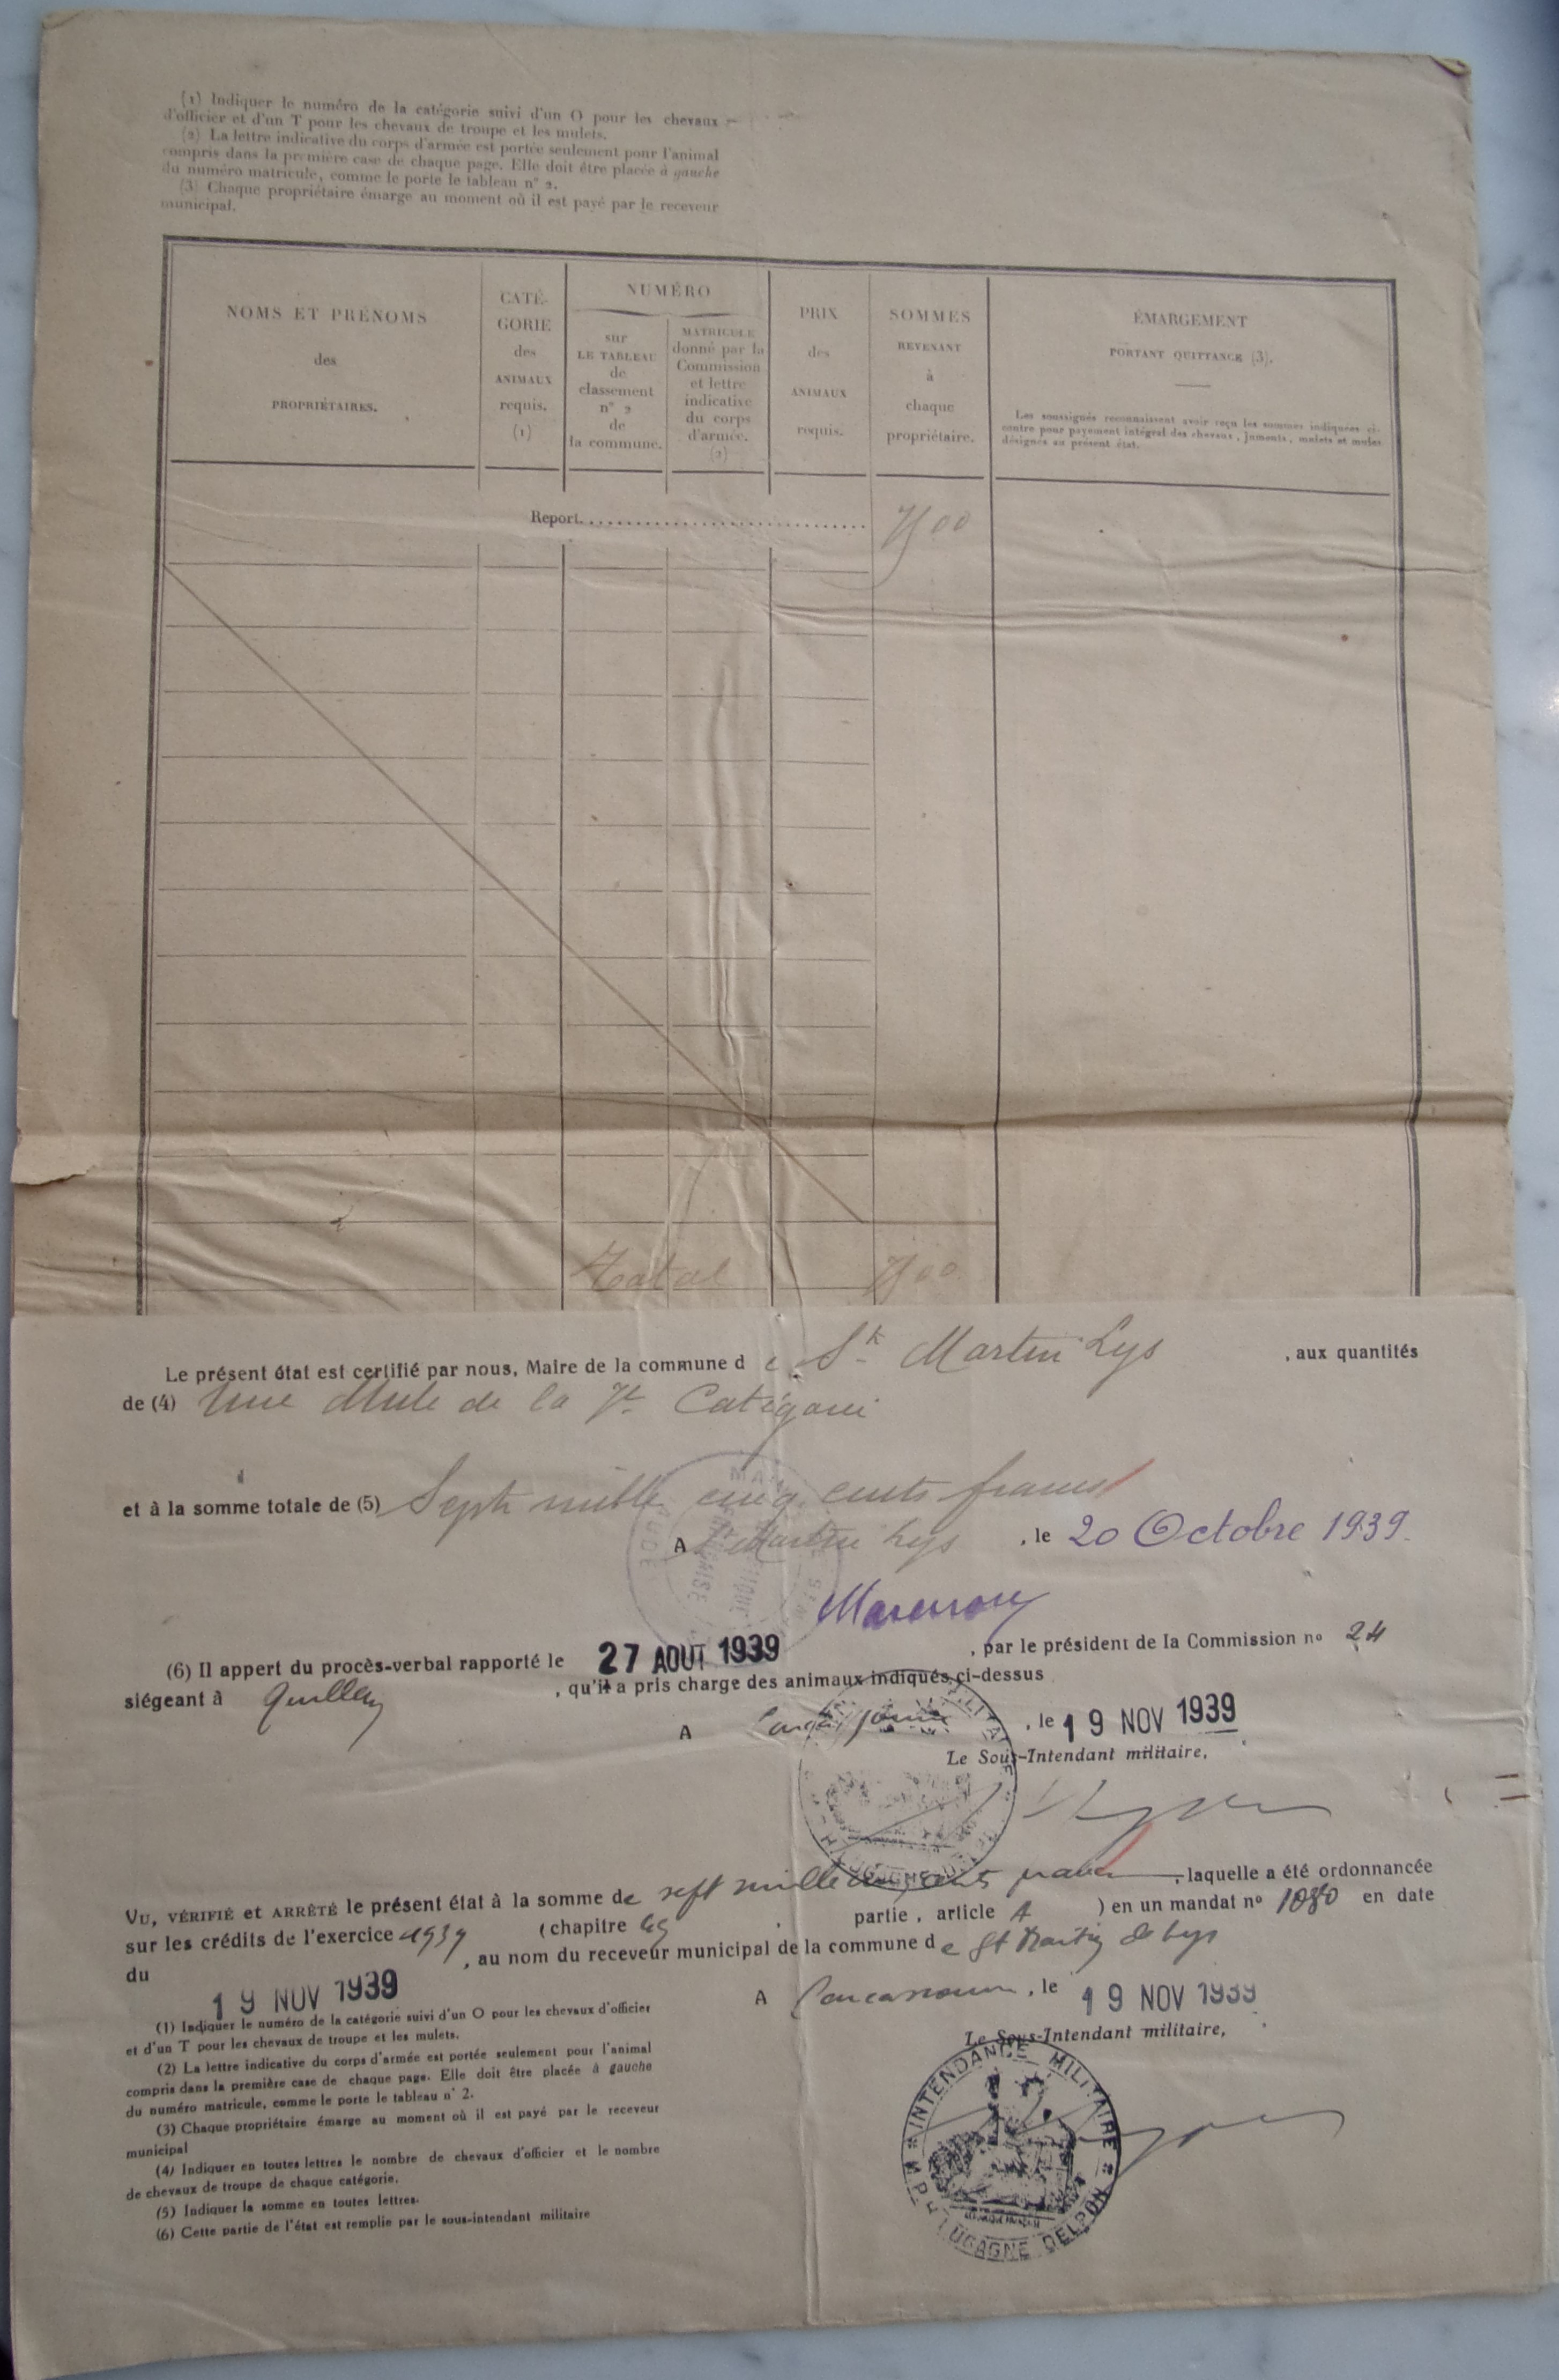 (1) Indiquer le numéro de la catégorie suivi d'un O pour les chevaux
d'officier et d'un T pour les chevaux de troupe et les mulets.
(2) La lettre indicative du corps d'armée est portée seulement pour l'animal
compris dans la première case de chaque page. Elle doit être placée à gauche
du numéro matricule, comme le porte le tableau n° 2.
(3) Chaque propriétaire émarge au moment où il est payé par le receveur
municipal.
NOMS ET PRÉNOMS
des
PROPRIÉTAIRES.
CATÉ-
GORIE
des
ANIMAUX
requis.
(1)
NUMÉRO
sur
LE TABLEAU
de
classement
n° 2
de
la commune.
MATRICULE
donné par la
Commission
et lettre
indicative
du corps
d'armée.
(2)
PRIX
des
ANIMAUX
requis.
SOMMES
REVENANT
à
chaque
propriétaire.
ÉMARGEMENT
PORTANT QUITTANCE (3).
Les soussignés reconnaissent avoir reçu les sommes indiquées ci-
contre pour payement intégral des chevaux, juments, mulets et mules
désignés au présent état.
Report 7500
Total 7500
Le présent état est certifié par nous, Maire de la commune de St Martin Lys, aux quantités
de (4) Une Mule de la 7e Catégorie
et à la somme totale de (5) Sept mille cinq cents francs
A St Martin Lys, le 20 Octobre 1939.
(6) Il appert du procès-verbal rapporté le 27 AOUT 1939, par le président de la Commission n° 24
siégeant à Quillan, qu'il a pris charge des animaux indiqués ci-dessus
A Carcassonne, le 19 NOV 1939
Le Sous-Intendant militaire,
VU, VÉRIFIÉ et ARRÊTÉ le présent état à la somme de sept mille cinq cents francs, laquelle a été ordonnancée
sur les crédits de l'exercice 1939 (chapitre partie, article A ) en un mandat n° en date
du 19 NOV 1939, au nom du receveur municipal de la commune de St Martin de Lys
A Carcassonne, le 19 NOV 1939
Le Sous-Intendant militaire,
INTENDANCE MILITAIRE
(1) Indiquer le numéro de la catégorie suivi d'un O pour les chevaux d'officier
et d'un T pour les chevaux de troupe et les mulets.
(2) La lettre indicative du corps d'armée est portée seulement pour l'animal
compris dans la première case de chaque page. Elle doit être placée à gauche
du numéro matricule, comme le porte le tableau n° 2.
(3) Chaque propriétaire émarge au moment où il est payé par le receveur
municipal
(4) Indiquer en toutes lettres le nombre de chevaux d'officier et le nombre
de chevaux de troupe de chaque catégorie.
(5) Indiquer la somme en toutes lettres.
(6) Cette partie de l'état est remplie par le sous-intendant militaire